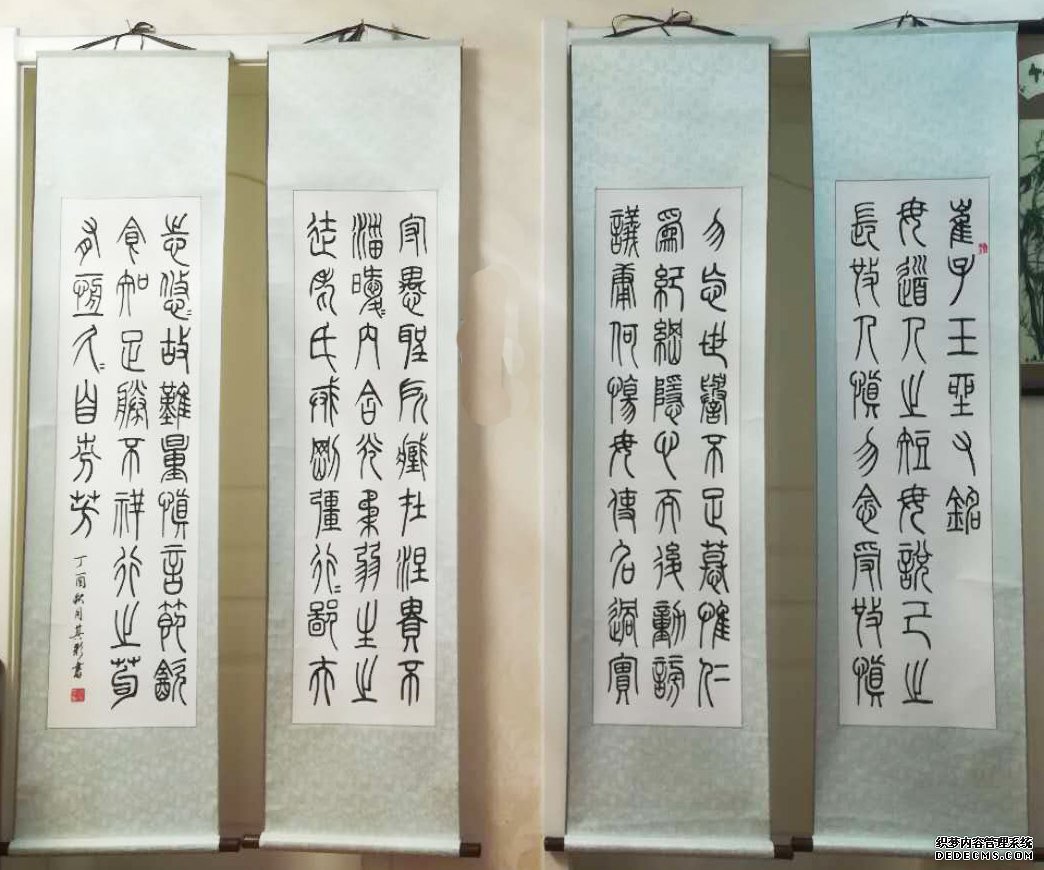 崔子玉座右銘
毋道人之短毋說己之
長施人慎勿念受施慎
勿忘世譽不足慕惟仁
為紀綱隱心而後動謗
議庸何傷毋使名過實
守愚聖所臧在涅貴不
淄曖〻內含光柔弱生之
徒老氏戒剛彊行〻鄙夫
志悠〻故難量慎言節飲
食知足勝不祥行之苟
有恆久〻自芬芳
丁酉秋月其書
织梦内容管理系统
DEDECMS.COM